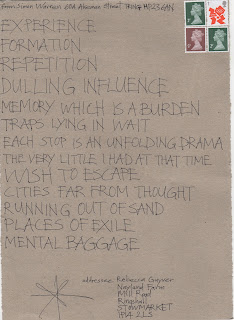 From Simon Warren
Street TRING HP23 6AN
EXPERIENCE
FORMATION
REPETITION
DULLING INFLUENCE
MEMORY WHICH IS A BURDEN
TRAPS LYING IN WAIT
EACH STOP IS AN UNFOLDING DRAMA
THE VERY LITTLE I HAD AT THAT TIME
WISH TO ESCAPE
CITIES FAR FROM THOUGHT
RUNNING OUT OF SAND
PLACES OF EXILE
MENTAL BAGGAGE
addressee: Rebecca Guyver
Nayland Farm
Mill Road
Ringshall
STOWMARKET
IP14 2LS